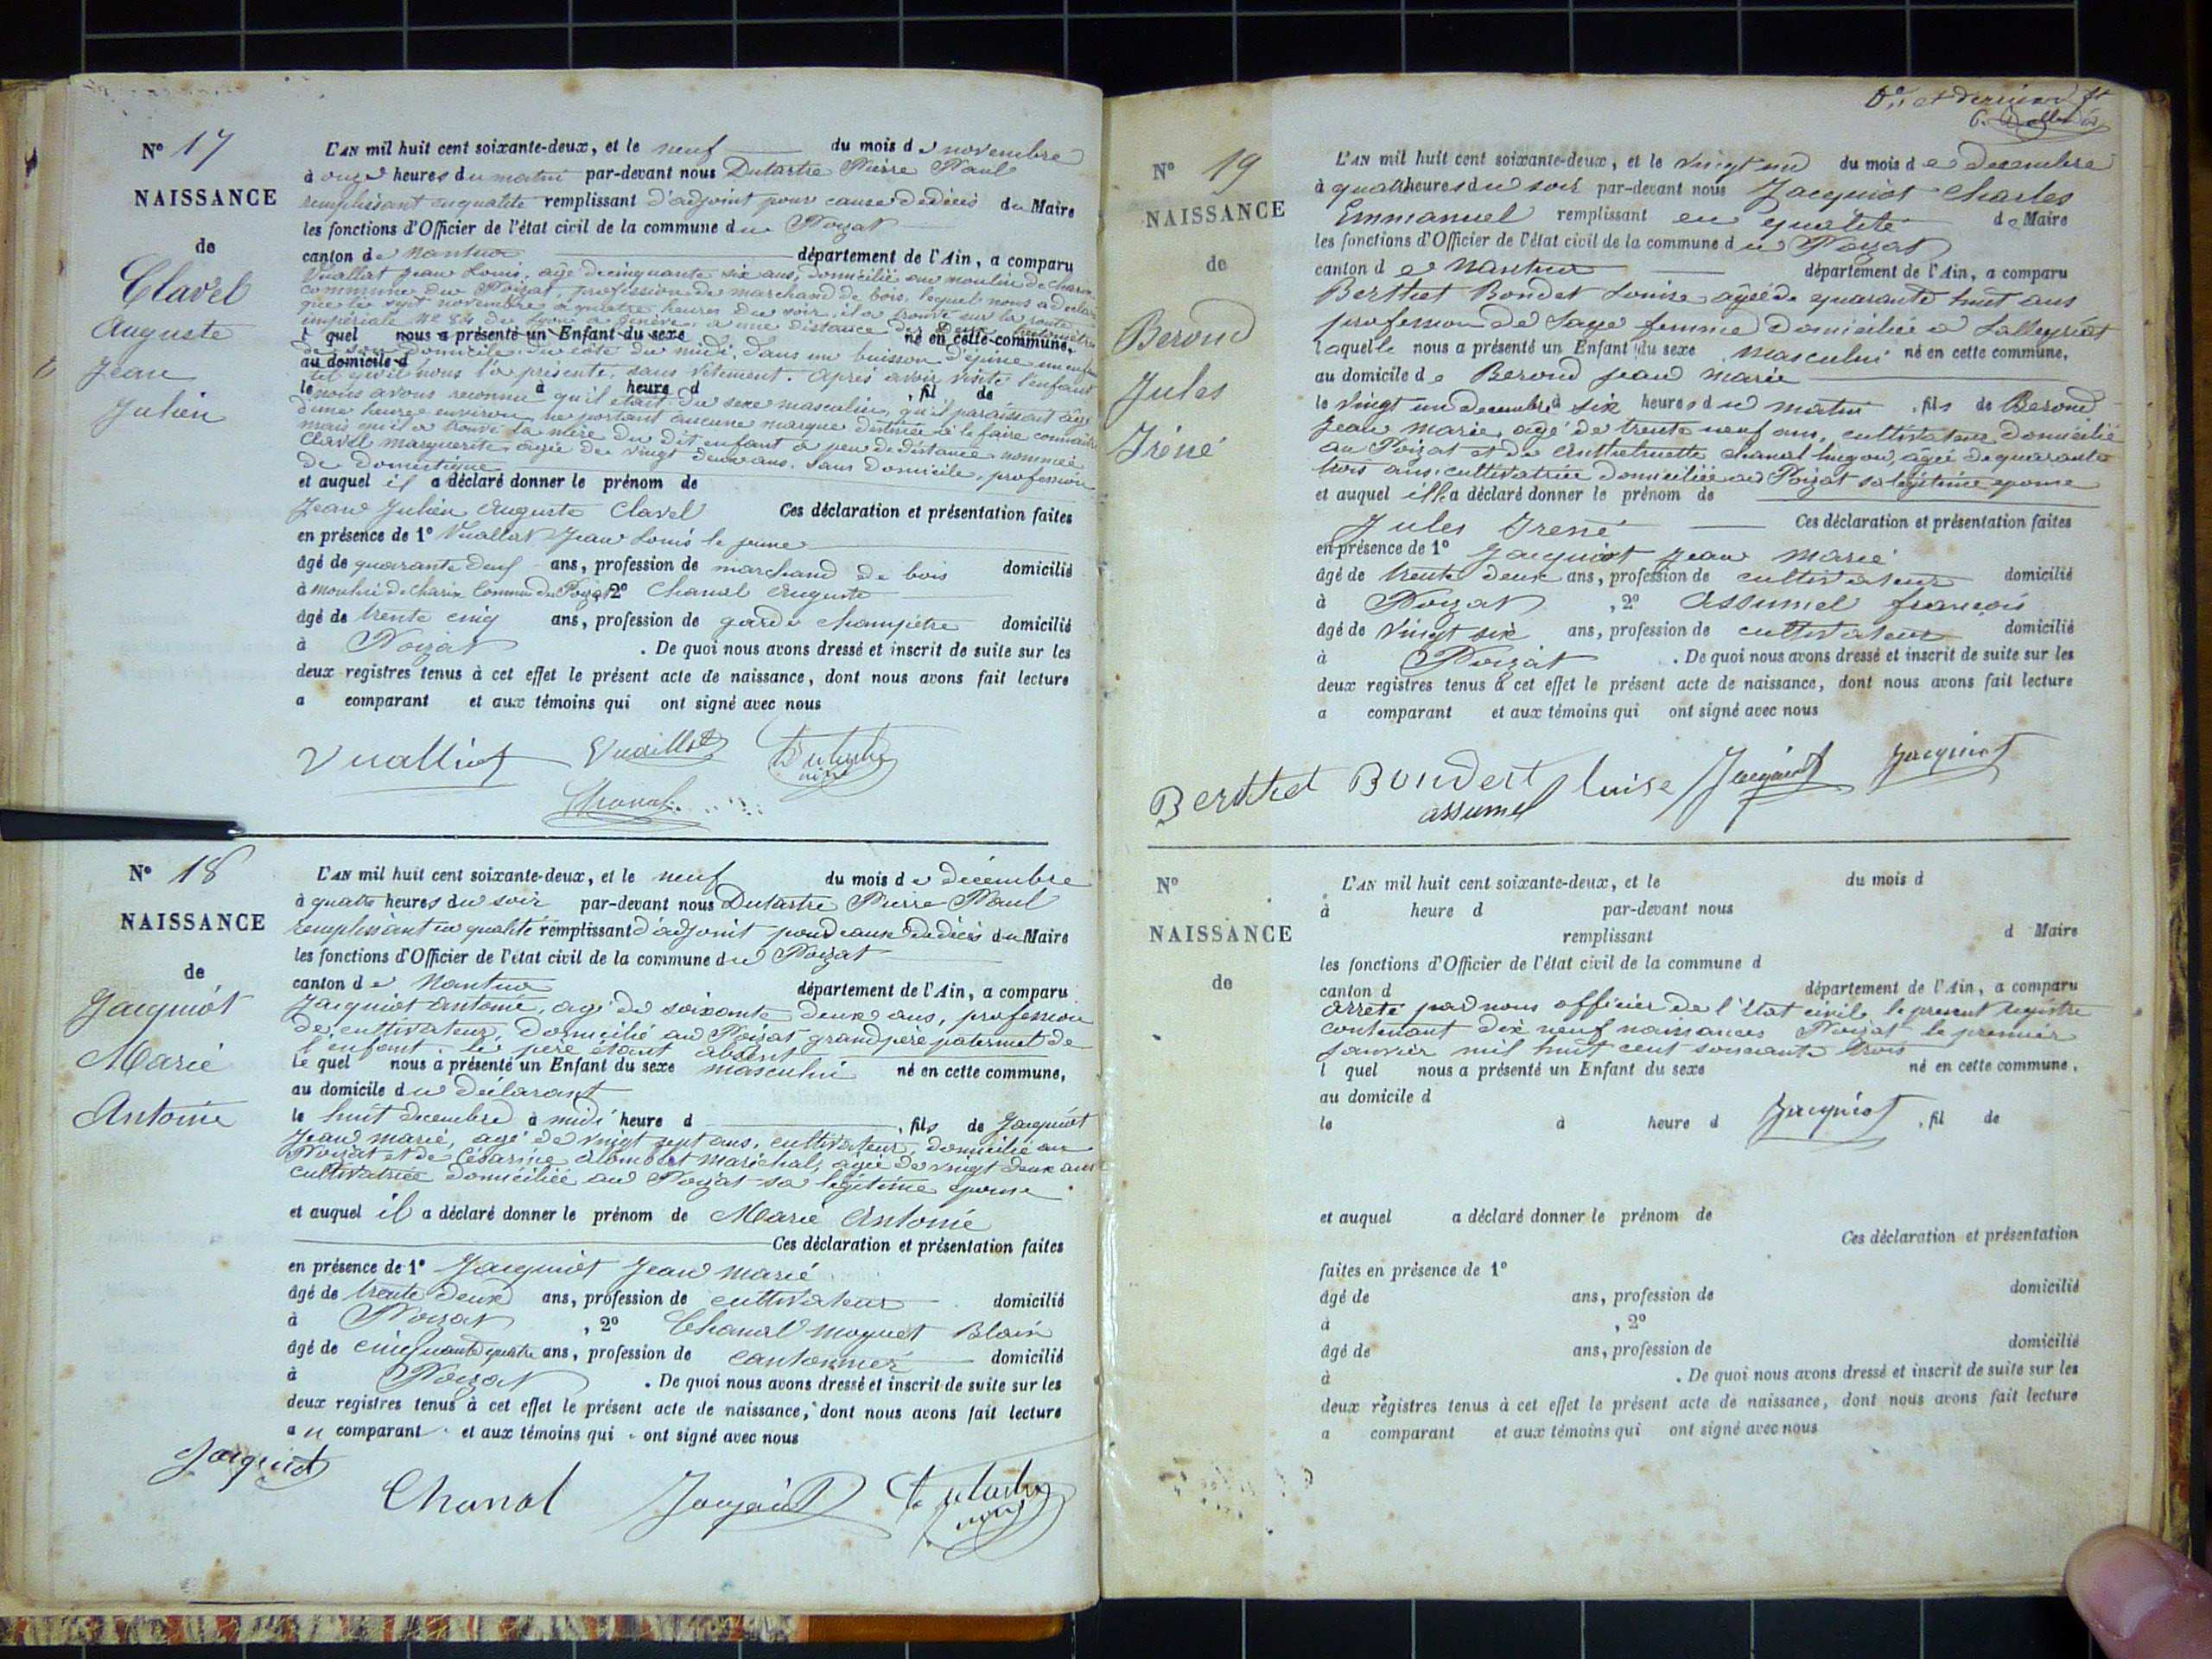 N° 17
NAISSANCE
de
Clavel
Auguste
Jean
Julien
L'AN mil huit cent soixante-deux, et le neuf du mois de novembre
à onze heures du matin par-devant nous Dutartre Pierre Paul
remplissant en qualité remplissant d'adjoint pour cause de décès du Maire
les fonctions d'Officier de l'état civil de la commune du Poizat
canton de Nantua département de l'Ain, a comparu
Vuallat Jean Louis, âgé de cinquante six ans, domicilié au moulin de Charix
commune du Poizat, profession de marchand de bois, lequel nous a déclaré
que le sept novembre à quatre heures du soir, il a trouvé sur la route
impériale N° 84 de Lyon à Genève, à une distance de deux
l quel nous a présenté un Enfant du sexe né en cette commune,
de son domicile, du côté du midi, dans un buisson d'épine un enfant
au domicile d
tel qu'il nous l'a présenté, sans vêtement. Après avoir visité l'enfant
le à heure d , fil de
nous avons reconnu qu'il était du sexe masculin, qu'il paraissait âgé
d'une heure environ ne portant aucune marque destinée à le faire connaitre
mais qu'il a trouvé la mère du dit enfant à peu de distance nommée
Clavel marguerite âgée de vingt deux ans, sans domicile, profession
de domestique
et auquel il a déclaré donner le prénom de
Jean Julien Auguste Clavel Ces déclaration et présentation faites
en présence de 1° Vuallat Jean Louis le jeune
âgé de quarante deux ans, profession de marchand de bois domicilié
à moulin de Charix Commune du Poizat 2° Chanal Auguste
âgé de trente cinq ans, profession de garde champêtre domicilié
à Poizat . De quoi nous avons dressé et inscrit de suite sur les
deux registres tenus à cet effet le présent acte de naissance, dont nous avons fait lecture
a comparant et aux témoins qui ont signé avec nous
Dutartre
Chanal
N° 18
NAISSANCE
de
Jacquiot
Marie
Antoine
L'AN mil huit cent soixante-deux, et le neuf du mois de décembre
à quatre heures du soir par-devant nous Dutartre Pierre Paul
remplissant en qualité remplissant d'adjoint pour cause de décès du Maire
les fonctions d'Officier de l'état civil de la commune du Poizat
canton de Nantua département de l'Ain, a comparu
Jacquiot antoine, âgé de soixante deux ans, profession
de cultivateur, domicilié au Poizat grand père paternel de
l'enfant, le père étant absent
le quel nous a présenté un Enfant du sexe masculin né en cette commune,
au domicile du déclarant
le huit decembre à midi heure d , fils de Jacquiot
Jean marie, âgé de vingt sept ans, cultivateur, domicilié au
Poizat et de Césarine Alombert Maréchal, âgée de vingt deux ans
cultivatrice domiciliée au Poizat sa légitime épouse
et auquel il a déclaré donner le prénom de Marie Antoine
Ces déclaration et présentation faites
en présence de 1° Jacquiot Jean Marie
âgé de trente deux ans, profession de cultivateur domicilié
à Poizat , 2° Chanal Moguet Blain
âgé de cinquante quatre ans, profession de cantonnier domicilié
à Poizat . De quoi nous avons dressé et inscrit de suite sur les
deux registres tenus à cet effet le présent acte de naissance, dont nous avons fait lecture
au comparant et aux témoins qui ont signé avec nous
Jacquiot
Chanal Jacquiot Dutartre
6e et dernier ft
N° 19
NAISSANCE
de
Berond
Jules
Iréné
L'AN mil huit cent soixante-deux, et le vingt un du mois de decembre
à quatre heures du soir par-devant nous Jacquiot Charles
Emmanuel remplissant en qualité de Maire
les fonctions d'Officier de l'état civil de la commune du Poizat
canton de Nantua département de l'Ain, a comparu
Berthet Bondet Louise âgée de quarante huit ans
profession de Sage femme domiciliée à Lalleyriat
laquelle nous a présenté un Enfant du sexe masculin né en cette commune,
au domicile de Berond Jean Marie
le vingt un decembre à six heures du matin , fils de Berond
Jean Marie, âgé de trente neuf ans, cultivateur domicilié
au Poizat et de Chanal hugon, âgée de quarante
trois ans, cultivatrice domiciliée au Poizat sa légitime épouse
et auquel elle a déclaré donner le prénom de
Jules Irené Ces déclaration et présentation faites
en présence de 1° Jacquiot Jean Marie
âgé de trente deux ans, profession de cultivateur domicilié
à Poizat , 2° Assumel françois
âgé de vingt six ans, profession de cultivateur domicilié
à Poizat . De quoi nous avons dressé et inscrit de suite sur les
deux registres tenus à cet effet le présent acte de naissance, dont nous avons fait lecture
a comparant et aux témoins qui ont signé avec nous
Berthet Bondet luise Jacquiot Jacquiot
assumel
N°
NAISSANCE
de
L'AN mil huit cent soixante-deux, et le du mois d
à heure d par-devant nous
remplissant d Maire
les fonctions d'Officier de l'état civil de la commune d
canton d département de l'Ain, a comparu
arrêté par nous officier de l'Etat civil le présent registre
contenant dix neuf naissances Poizat le premier
Janvier mil huit cent soixante trois
l quel nous a présenté un Enfant du sexe né en cette commune,
au domicile d
le à heure d Jacquiot , fil de
et auquel a déclaré donner le prénom de
Ces déclaration et présentation
faites en présence de 1°
âgé de ans, profession de domicilié
à , 2°
âgé de ans, profession de domicilié
à . De quoi nous avons dressé et inscrit de suite sur les
deux registres tenus à cet effet le présent acte de naissance, dont nous avons fait lecture
a comparant et aux témoins qui ont signé avec nous